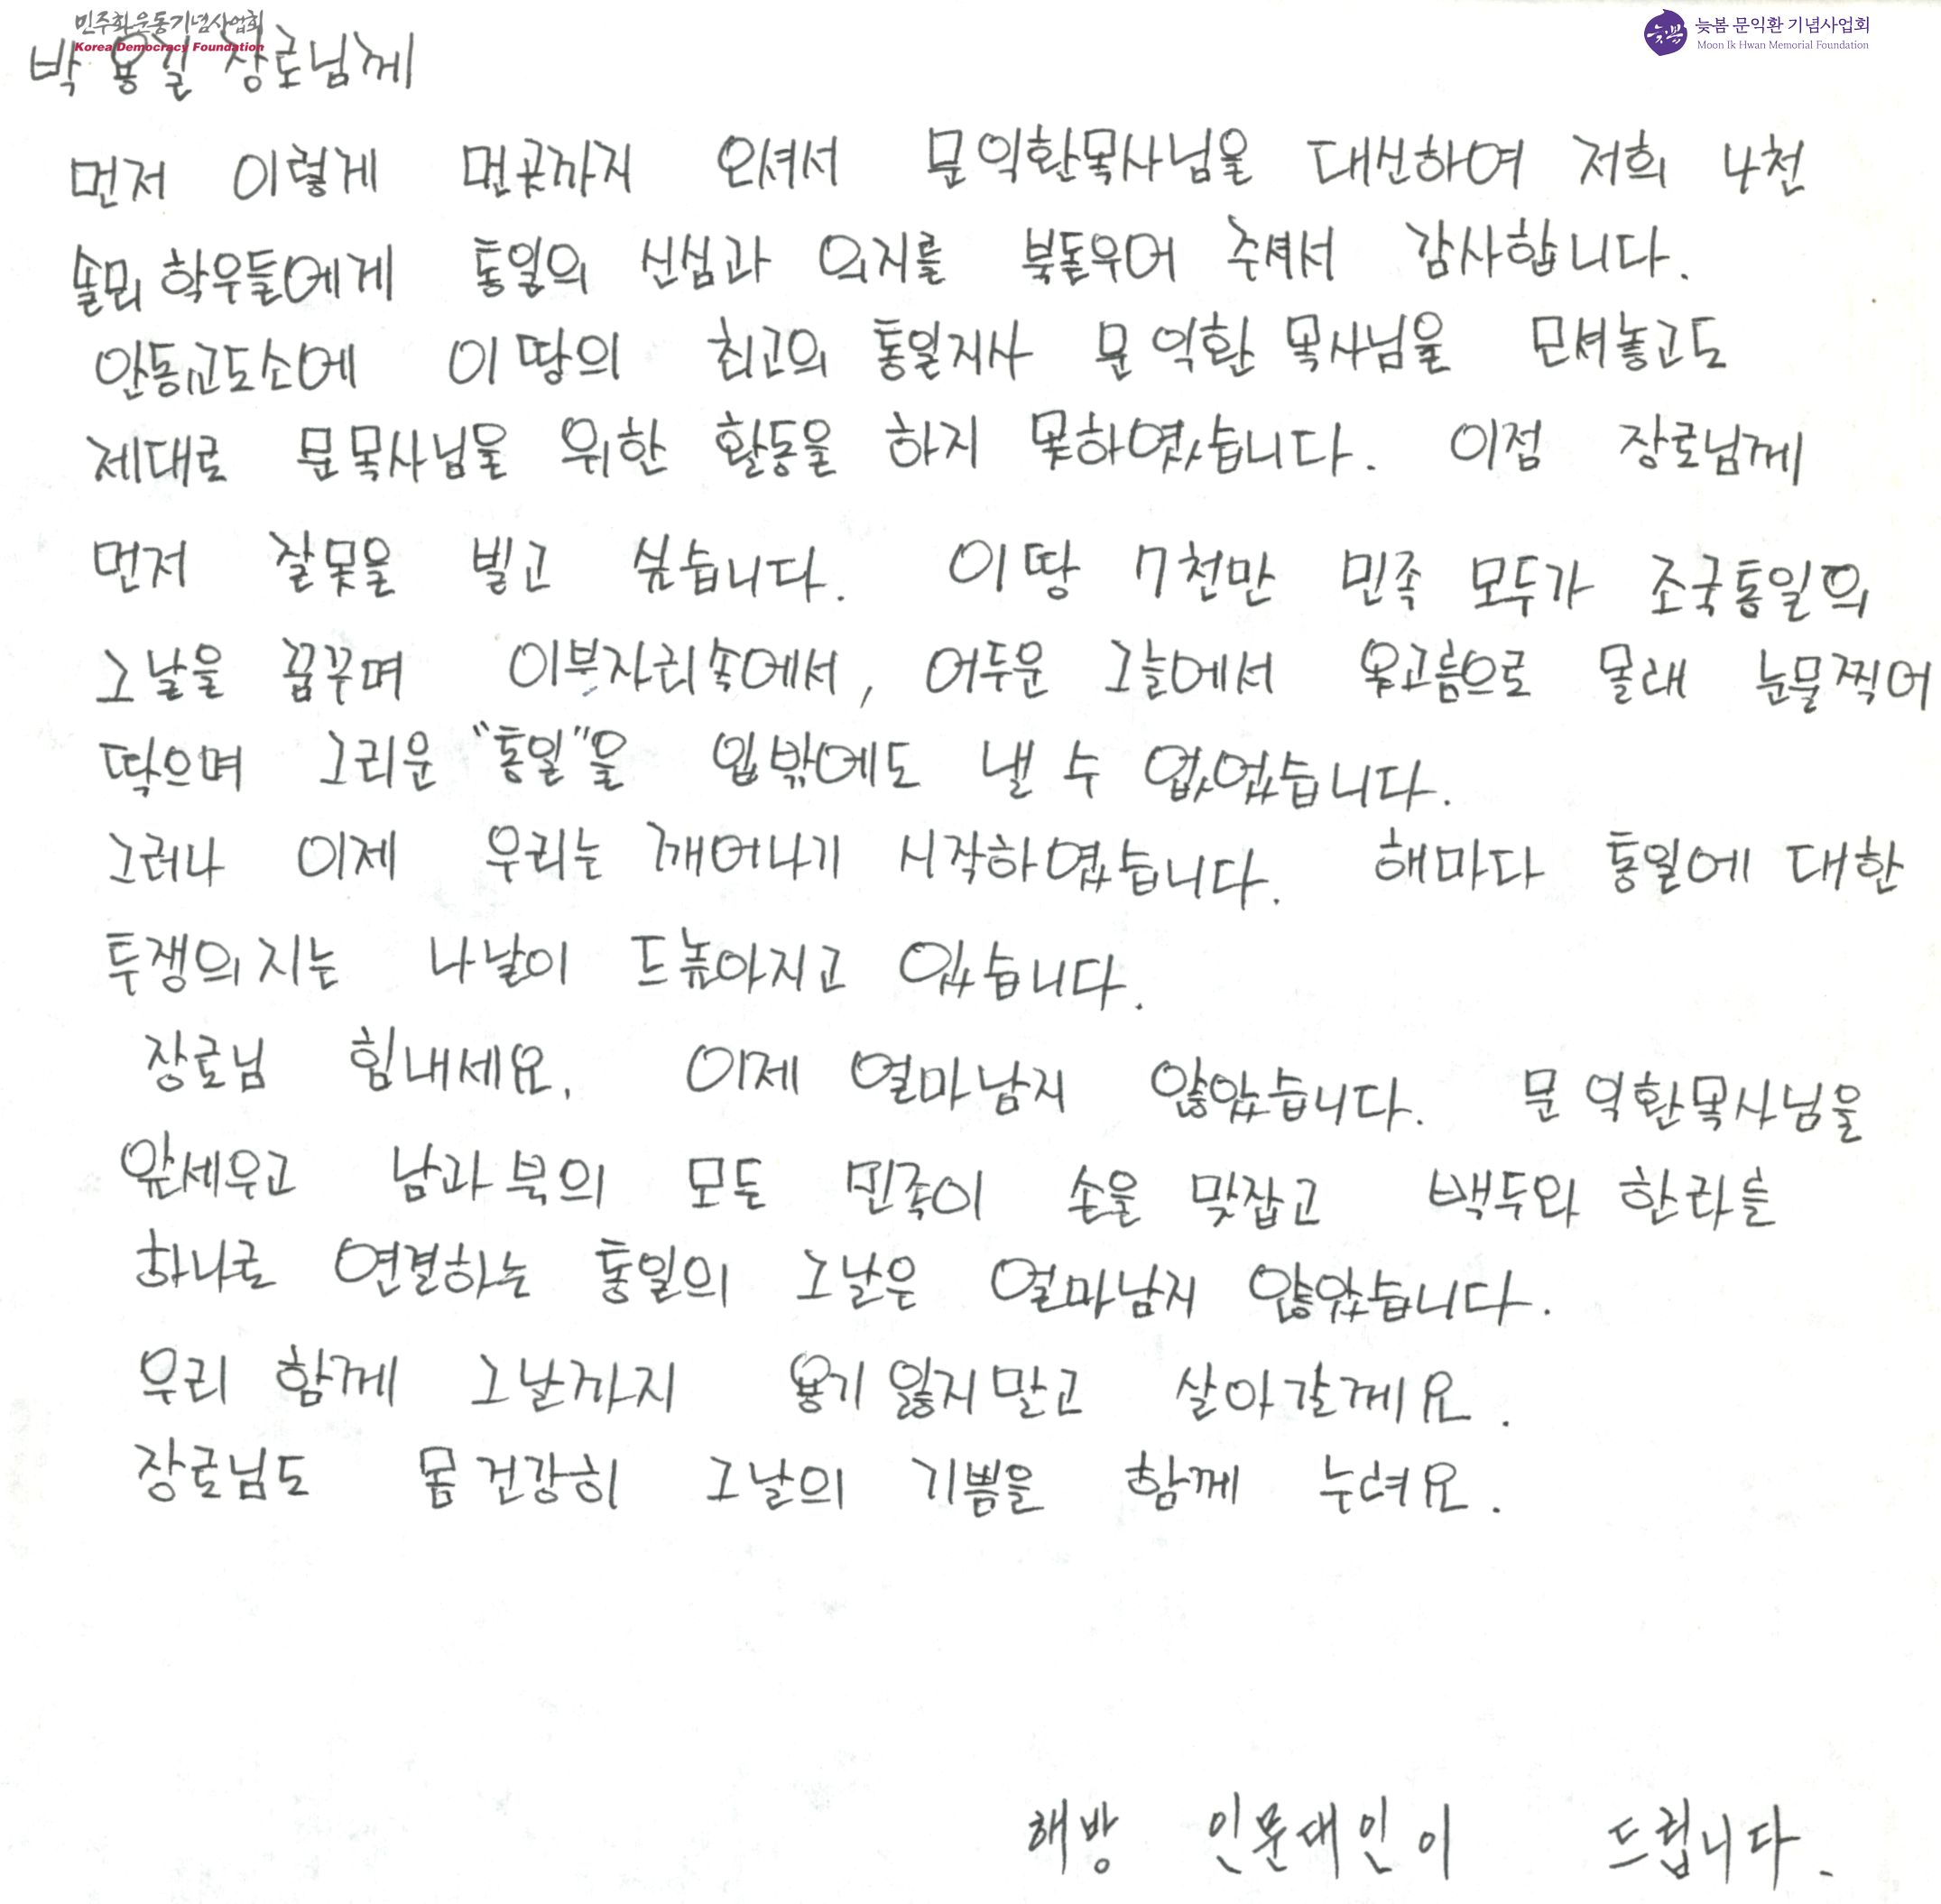 민주화운동기념사업회
Korea Democracy Foundation
늦봄
늦봄 문익환 기념사업회
Moon Ik Hwan Memorial Foundation
박 용길 장로님께
먼저 이렇게 먼곳까지 오셔서 문익환목사님을 대신하여 저희 4천
솔뫼 학우들에게 통일의 신심과 의지를 북돋우어 주셔서 감사합니다.
안동교도소에 이 땅의 최고의 통일지사 문익환 목사님을 모셔놓고도
제대로 문목사님을 위한 활동을 하지 못하였습니다. 이점 장로님께
먼저 잘못을 빌고 싶습니다. 이 땅 7천만 민족 모두가 조국통일의
그날을 꿈꾸며 이부자리속에서, 어두운 그늘에서 옷고름으로 몰래 눈물찍어
딲으며 그리운 "통일"을 입밖에도 낼 수 없었습니다.
그러나 이제 우리는 깨어나기 시작하였습니다. 해마다 통일에 대한
투쟁의지는 나날이 드높아지고 있습니다.
장로님 힘내세요. 이제 얼마남지 않았습니다. 문익환목사님을
앞세우고 남과북의 모든 민족이 손을 맞잡고 백두와 한라를
하나로 연결하는 통일의 그날은 얼마남지 않았습니다.
우리 함께 그날까지 용기 잃지말고 살아갈께요.
장로님도 몸 건강히 그날의 기쁨을 함께 누려요.
해방 인문대인이 드립니다.